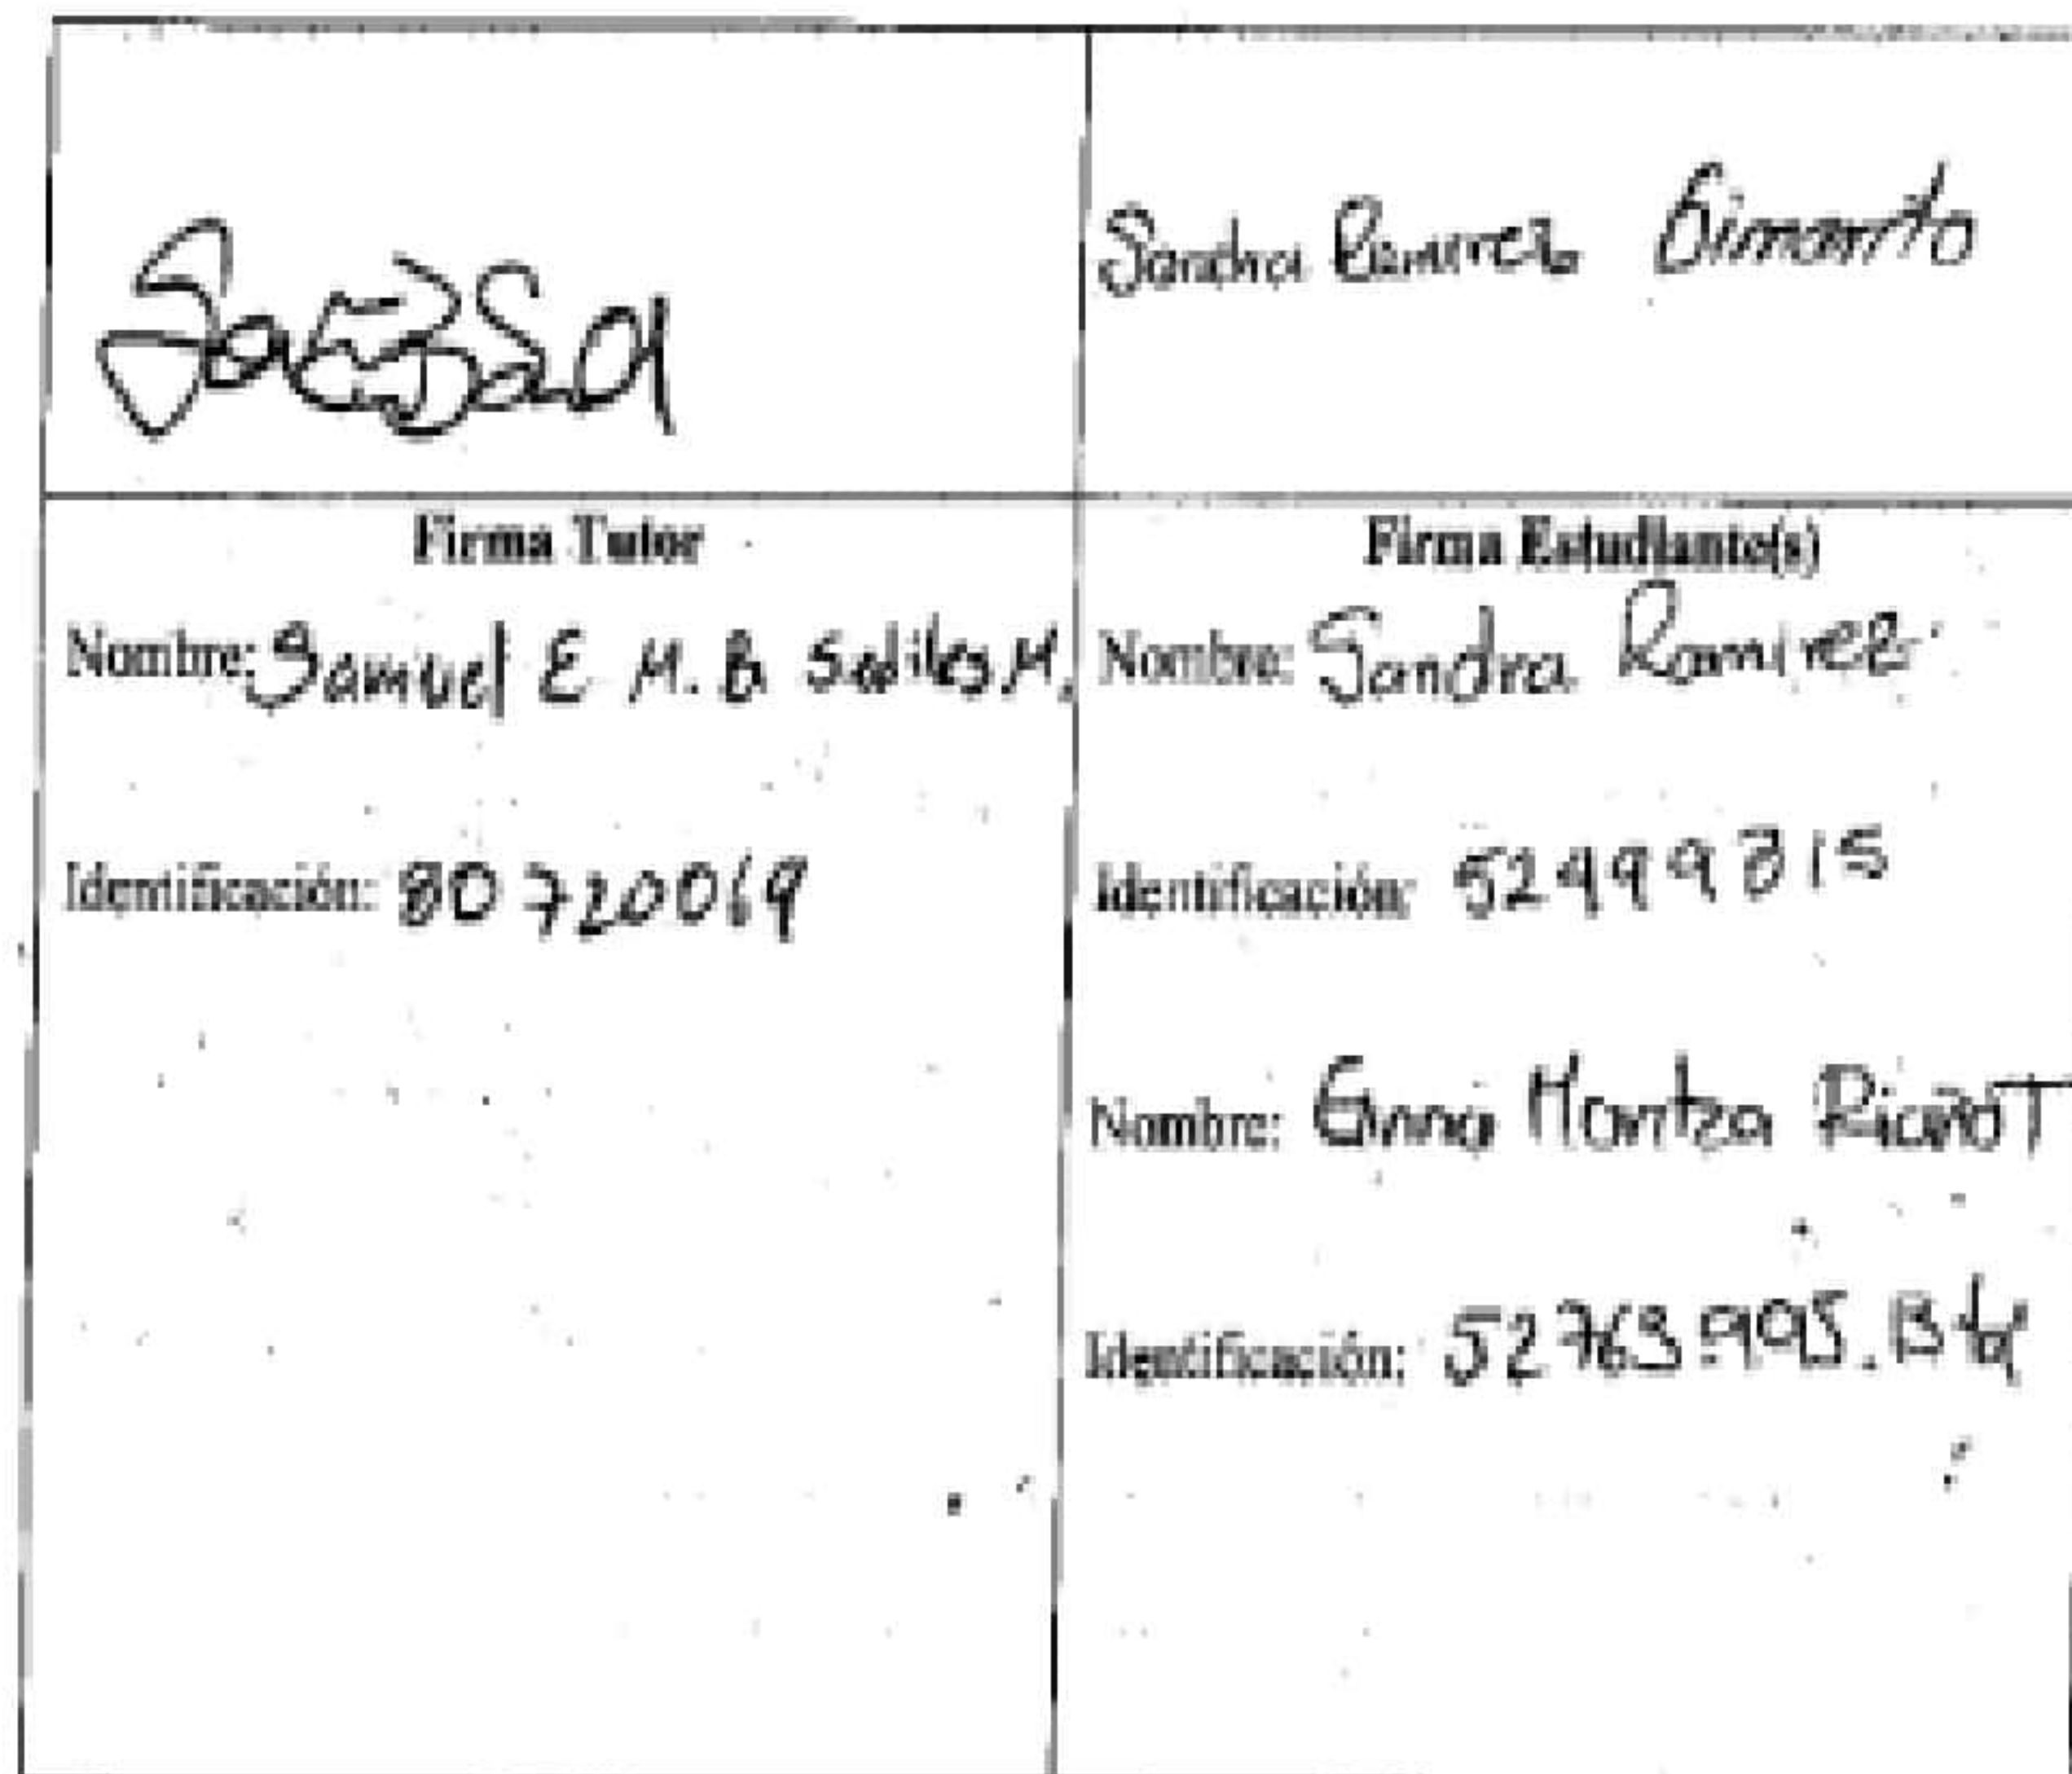 Sandra Ramirez
Firma Tutor
Firma Estudiante(s)
Nombre: Samuel E M. B M.
Nombre: Sandra Ramirez
Identificación: 80720069
Identificación: 52999815
Nombre: Maritza
Identificación: 52763995. Bta